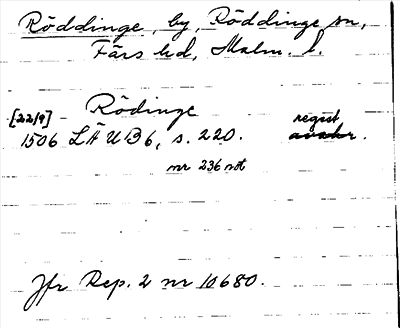 Röddinge, by, Röddinge sn,
Färs hd, Malm. l.
[22/9] - Rödinge
1506 LÄU B6, s. 220. regist
avskr.
nr 236 not
Jfr Rep. 2 nr 10680.